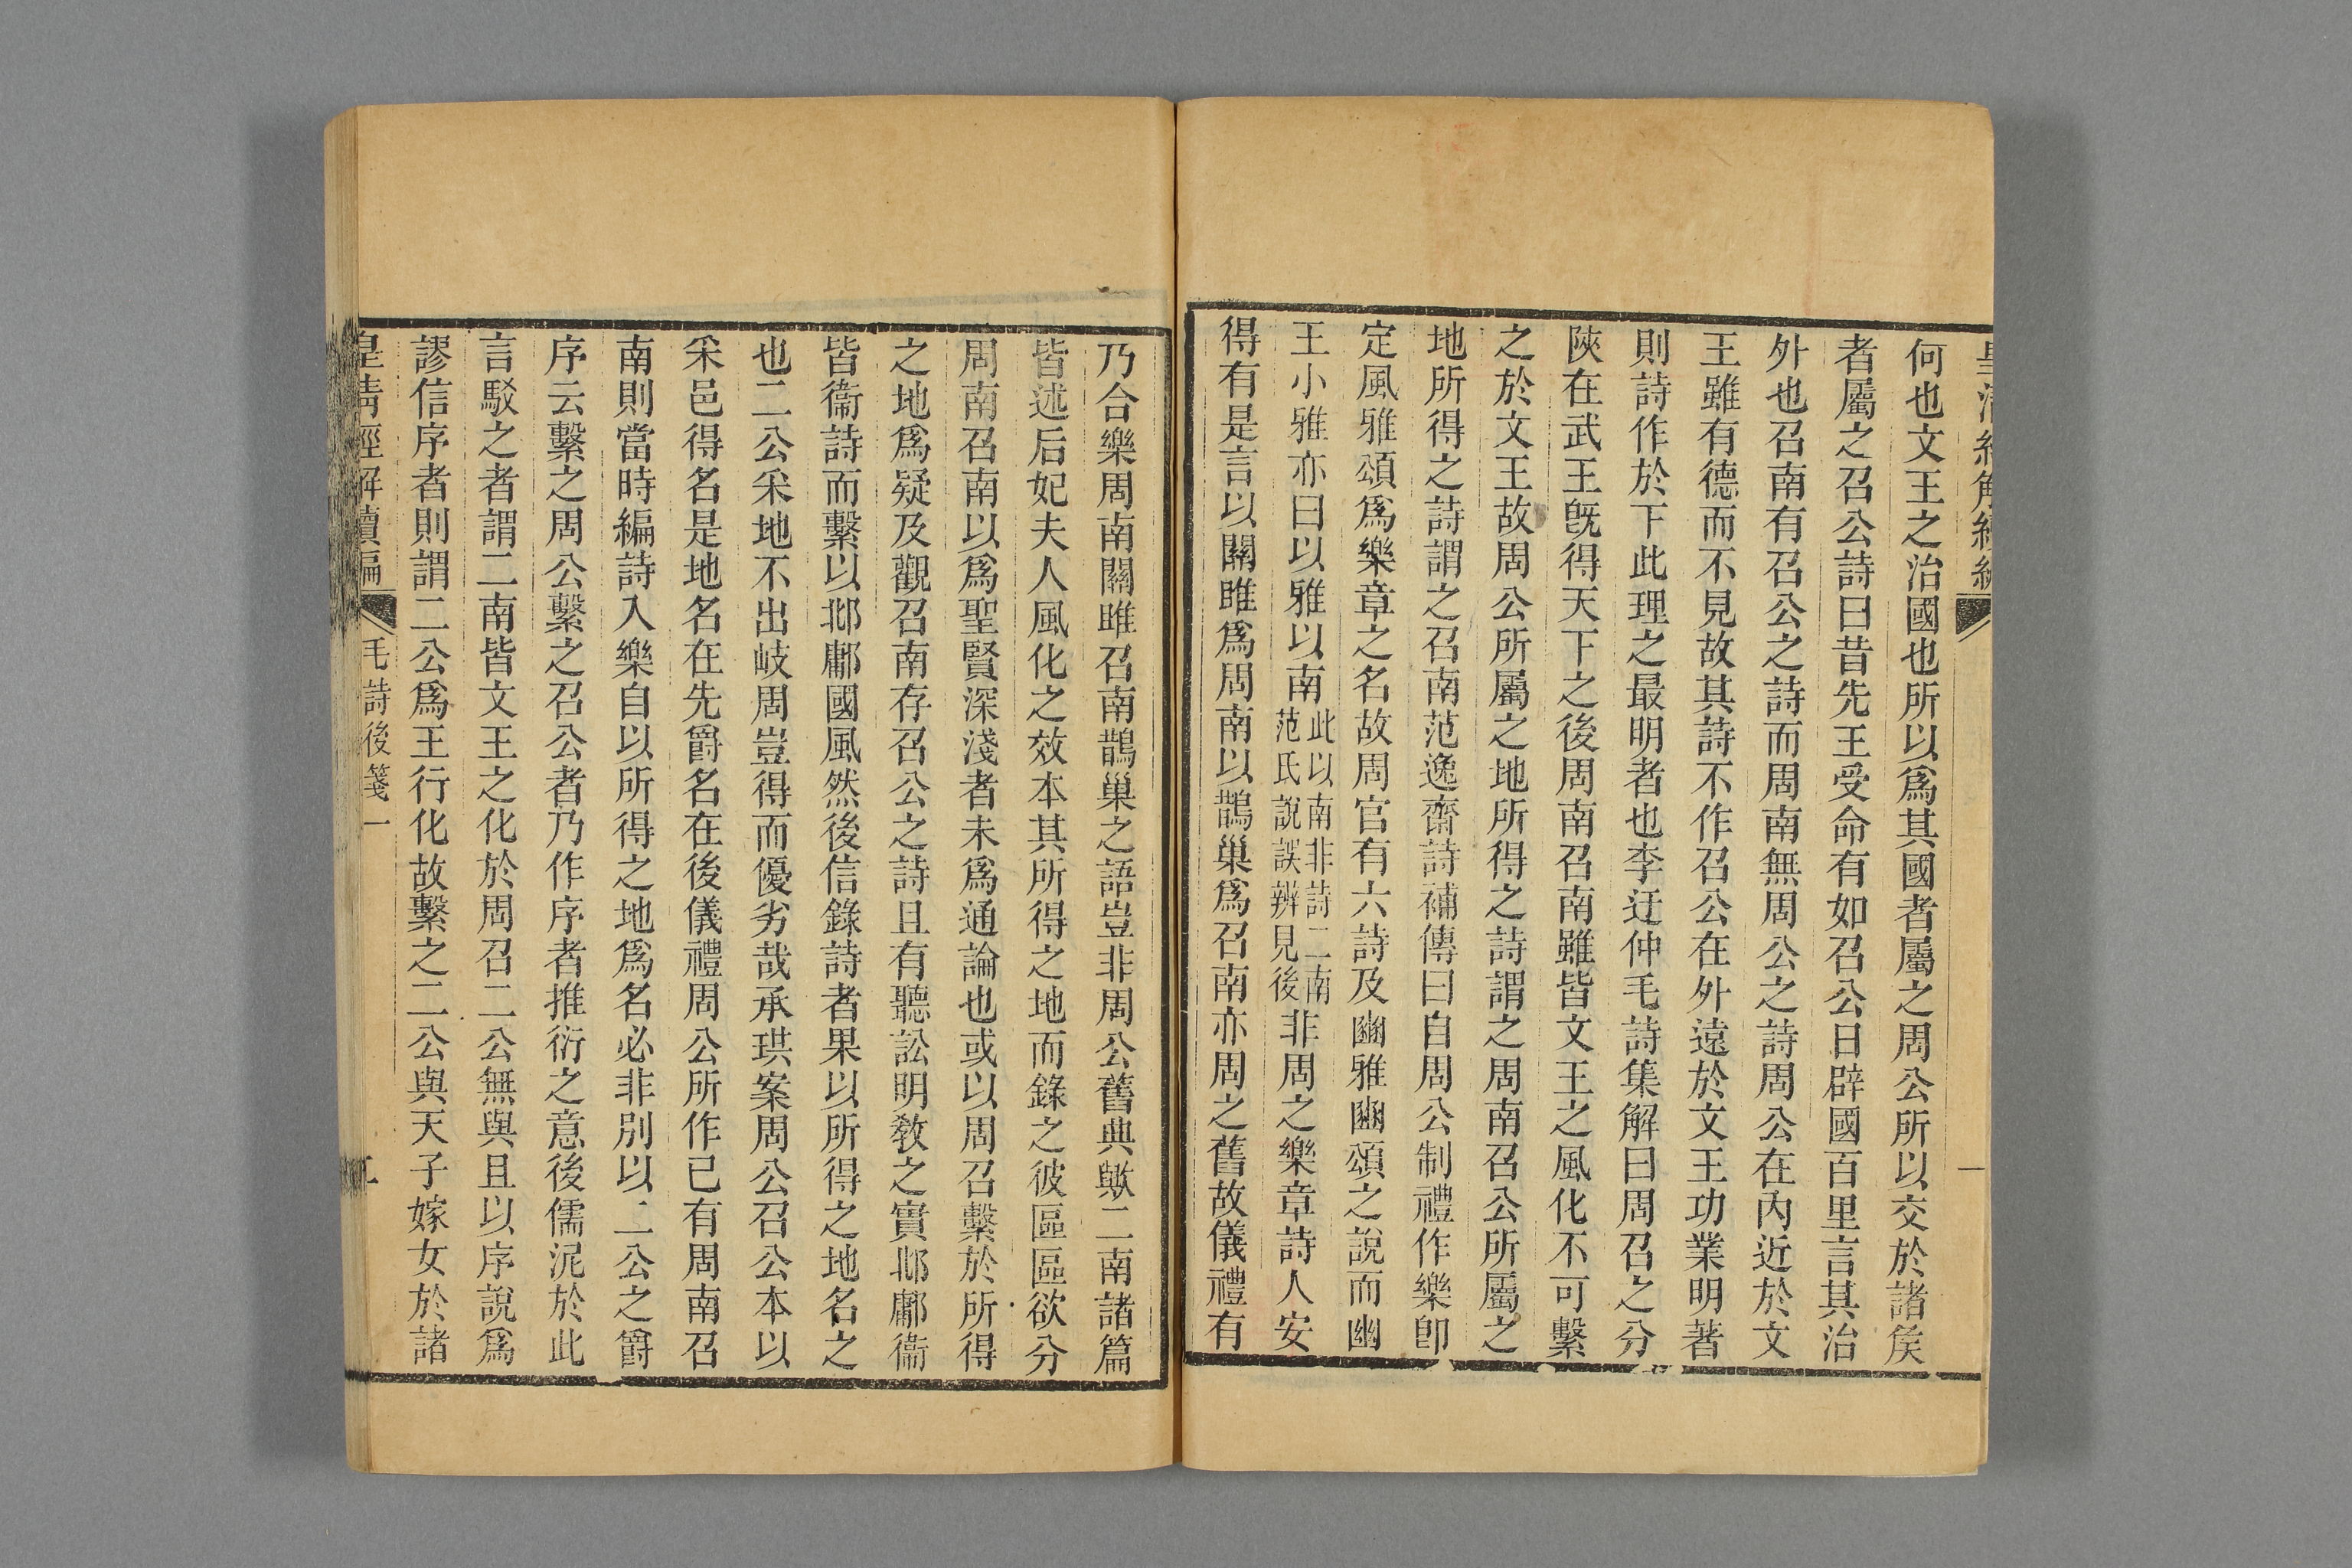 何也文王之治國也所以爲其國者屬之周公所以交於諸矦
者屬之召公詩曰昔先王受命有如召公日辟國百里言其治
外也召南有召公之詩而周南無周公之詩周公在內近於文
王雖有德而不見故其詩不作召公在外遠於文王功業明著
則詩作於下此理之最明者也李迂仲毛詩集解曰周召之分
陝在武王旣得天下之後周南召南雖皆文王之風化不可繫
之於文王故周公所屬之地所得之詩謂之周南召公所屬之
地所得之詩謂之召南范逸齋詩補傳曰自周公制禮作樂卽
定風雅頌爲樂章之名故周官有六詩及豳雅豳頌之說而幽
王小雅亦曰以雅以南此以南非詩二南范氏說誤辨見後非周之樂章詩人安
得有是言以關雎爲周南以鵲巢爲召南亦周之舊故儀禮有
乃合樂周南關雎召南鵲巢之語豈非周公舊典歟二南諸篇
皆述后妃夫人風化之效本其所得之地而錄之彼區區欲分
周南召南以爲聖賢深淺者未爲通論也或以周召繫於所得
之地爲疑及觀召南存召公之詩且有聽訟明敎之實邶鄘衞
皆衞詩而繫以邶鄘國風然後信錄詩者果以所得之地名之
也二公采地不出岐周豈得而優劣哉承珙案周公召公本以
采邑得名是地名在先爵名在後儀禮周公所作已有周南召
南則當時編詩入樂自以所得之地爲名必非別以二公之爵
序云繫之周公繫之召公者乃作序者推衍之意後儒泥於此
言駁之者謂二南皆文王之化於周召二公無與且以序說爲
謬信序者則謂二公爲王行化故繫之二公與天子嫁女於諸
皇清經解續編
毛詩後箋一